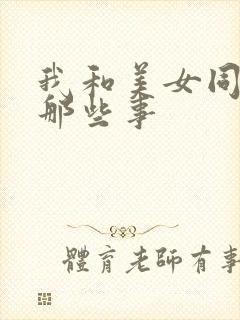 我和美女同
那些事
體育老師有事